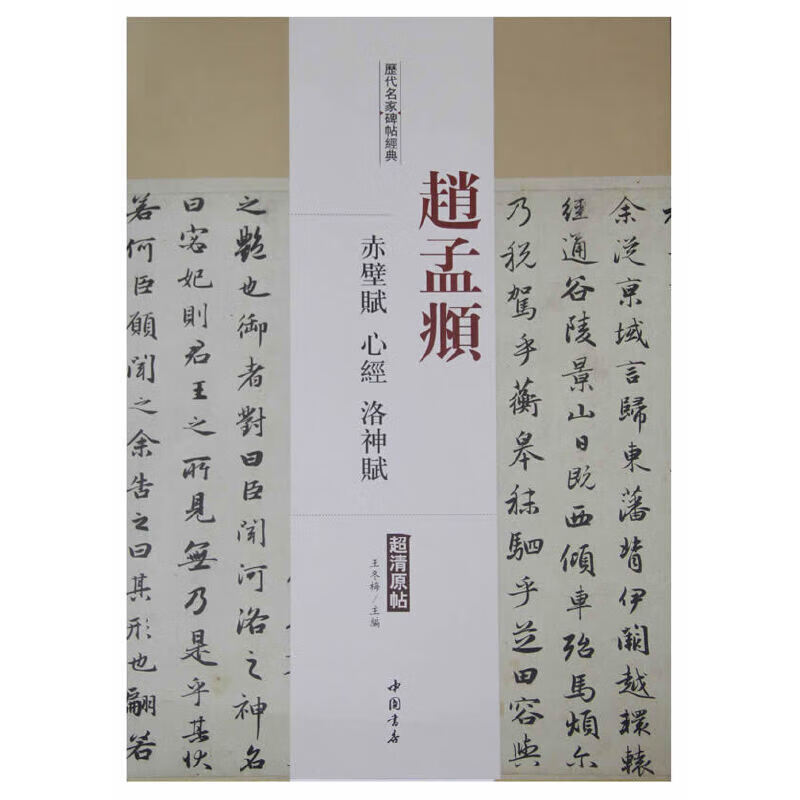 余從京域言歸東藩背伊闕越轘轅
經通谷陵景山日既西傾車殆馬煩尒
乃税駕乎蘅皋秣駟乎芝田容與
歷代名家碑帖經典
趙孟頫
赤壁賦 心經 洛神賦
超清原帖
王冬梅/主編
中国书店
之艷也御者對曰臣聞河洛之神名
曰宓妃則君王之所見無乃是乎其狀
若何臣願聞之余告之曰其形也翩若